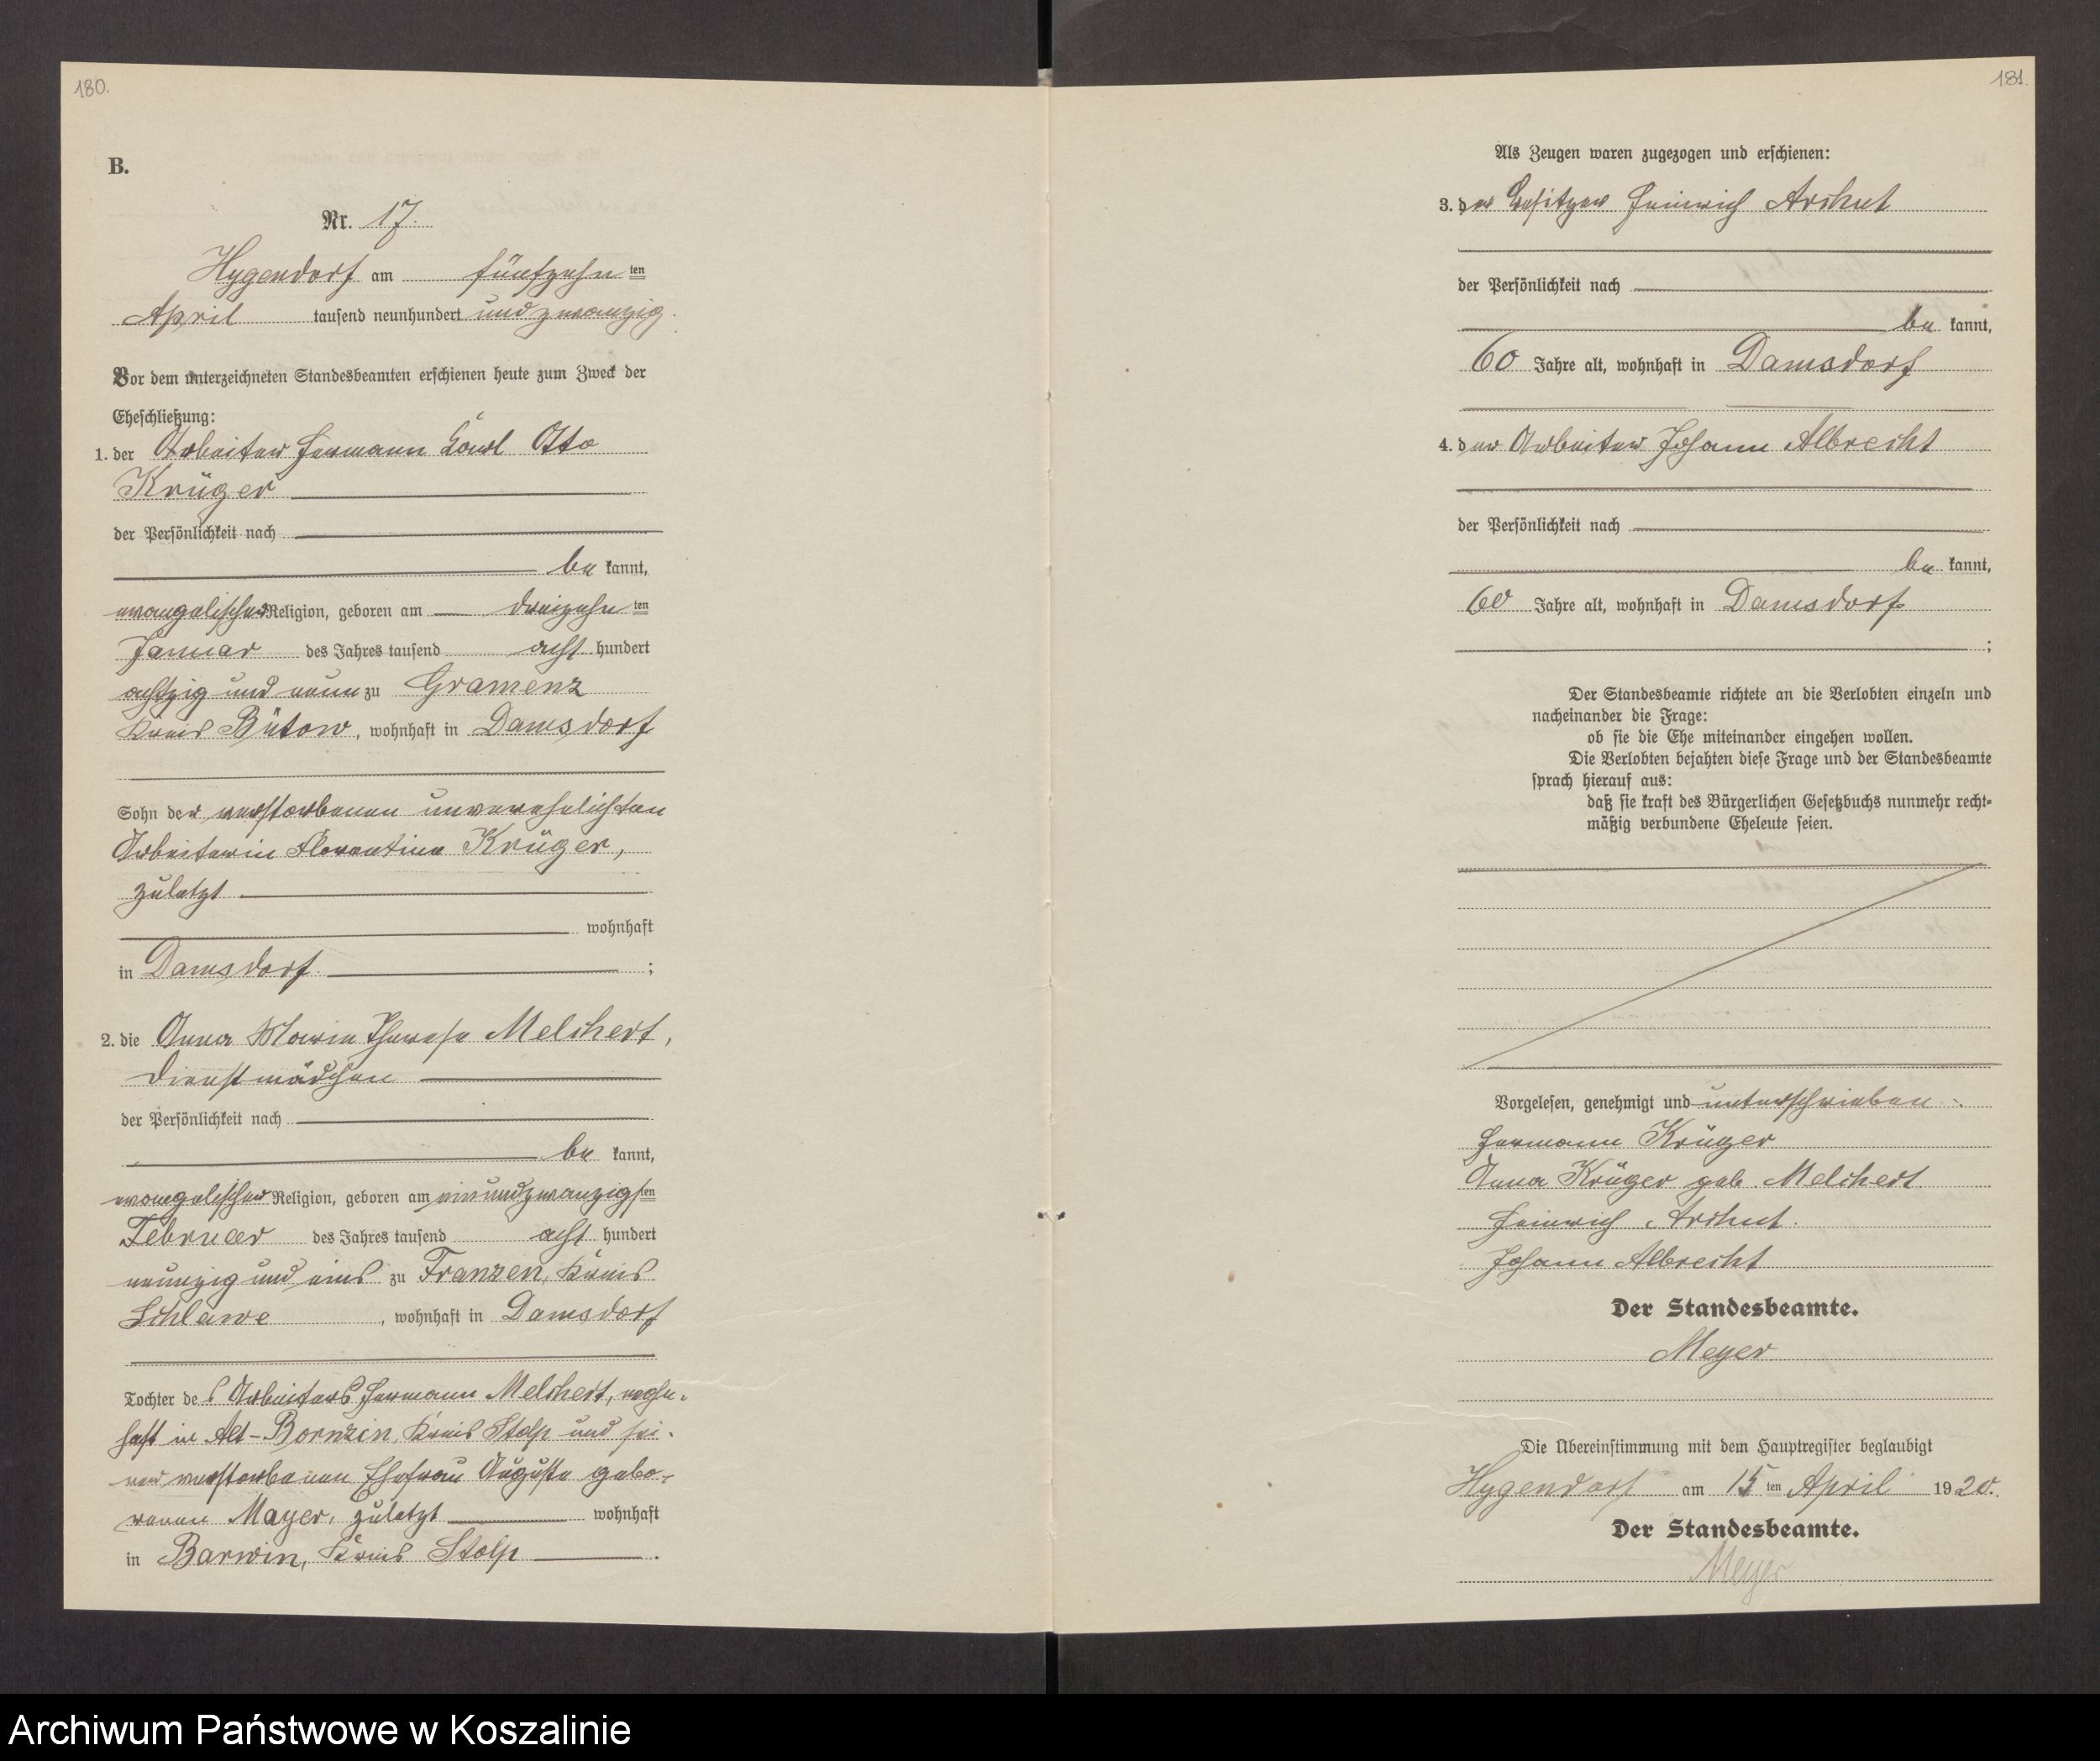 180.
B.
Nr. 17.
Hygendorf am fünfzehn ten
April tausend neunhundert und zwanzig.
Vor dem unterzeichneten Standesbeamten erschienen heute zum Zweck der
Eheschließung:
1. der Arbeiter Hermann Karl Otto
Krüger
der Persönlichkeit nach
be kannt,
evangelischer Religion, geboren am dreizehn ten
Januar des Jahres tausend acht hundert
achtzig und neun zu Gramenz
Kreis Bütow, wohnhaft in Damsdorf
Sohn der verstorbenen unverehelichten
Arbeiterin Florentine Krüger,
zuletzt
wohnhaft
in Damsdorf. ;
2. die Anna Marie Therese Melchert,
Dienstmädchen
der Persönlichkeit nach
be kannt,
evangelischer Religion, geboren am einundzwanzigsten
Februar des Jahres tausend acht hundert
neunzig und eins zu Franzen, Kreis
Schlawe, wohnhaft in Damsdorf
Tochter des Arbeiters Hermann Melchert, wohn-
haft in Alt-Bornzin, Kreis Stolp und sei-
ner verstorbenen Ehefrau Auguste gebo-
renen Mayer, zuletzt wohnhaft
in Barwin, Kreis Stolp .
181.
Als Zeugen waren zugezogen und erschienen:
3. der Besitzer Heinrich Arthut
der Persönlichkeit nach
be kannt,
60 Jahre alt, wohnhaft in Damsdorf
4. der Arbeiter Johann Albrecht
der Persönlichkeit nach
be kannt,
60 Jahre alt, wohnhaft in Damsdorf
;
Der Standesbeamte richtete an die Verlobten einzeln und
nacheinander die Frage:
ob sie die Ehe miteinander eingehen wollen.
Die Verlobten bejahten diese Frage und der Standesbeamte
sprach hierauf aus:
daß sie kraft des Bürgerlichen Gesetzbuchs nunmehr recht-
mäßig verbundene Eheleute seien.
Vorgelesen, genehmigt und unterschrieben:
Hermann Krüger
Anna Krüger geb. Melchert
Heinrich Arthut.
Johann Albrecht
Der Standesbeamte.
Meyer
Die Übereinstimmung mit dem Hauptregister beglaubigt
Hygendorf am 15 ten April 1920.
Der Standesbeamte.
Meyer
Archiwum Państwowe w Koszalinie